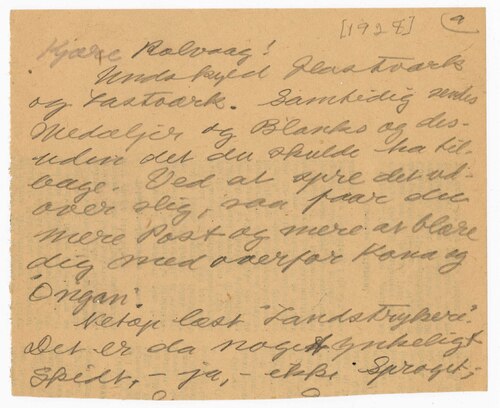 [1928] 9
Kjære Rolvaag!
Undskyld Hastværk
og Lastværk. Samtidig sendes
Medaljer og Blanks og des-
uden det du skulde ha til-
bage. Ved at spre det ud-
over slig, saa faar du
mere Post og mere at blære
dig med overfor Kona og
"Ongan".
Netop læst "Landstrykere".
Det er da noget ynkeligt
Skidt, – ja, – ikke Sproget;